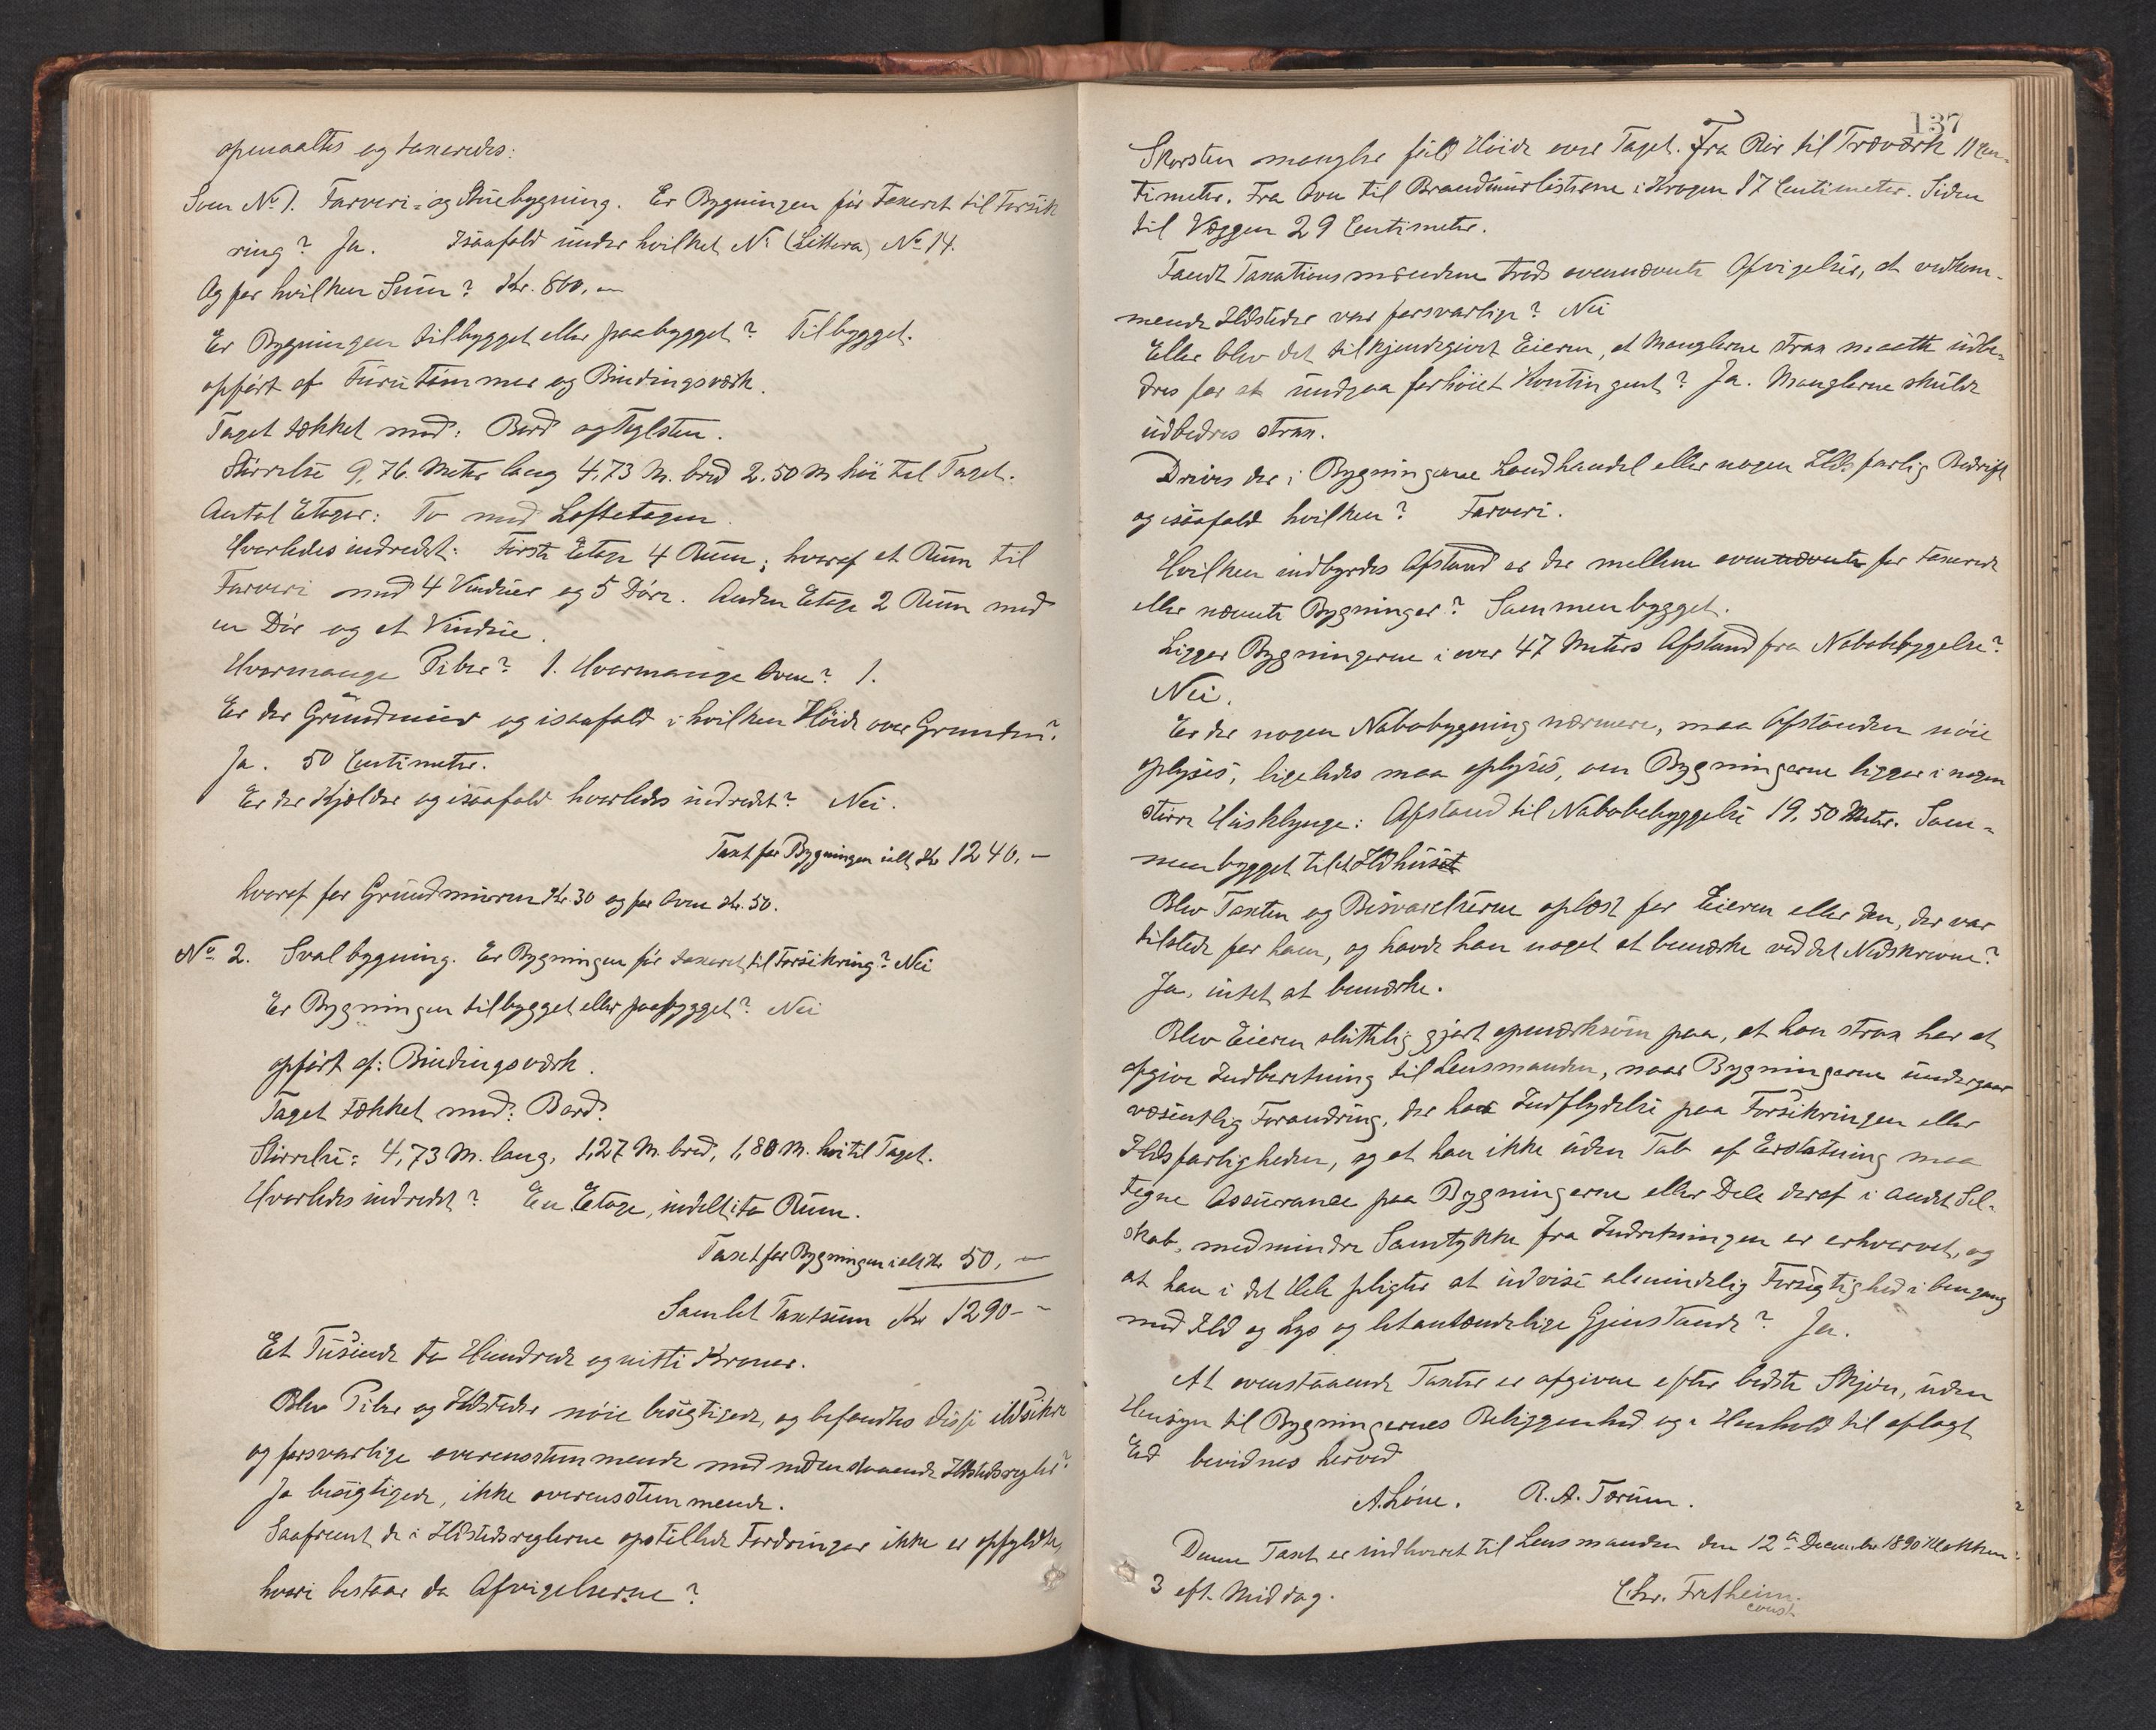 opmaaltes og taxeredes:
Som No. 1. Farveri- og Stuebygning. Er Bygningen før Taxeret til Forsik
ring? Ja. Isaafald under hvilket No: (Littera) No 14.
Og for hvilken Sum? Kr. 800,—
Er Bygningen tilbygget eller paabygget? Tilbygget.
opført af Furutømmer og Bindingsværk.
Taget tækket med: Bord og Teglsten.
Størrelse 9,76. Meter lang 4,73 M. bred 2.50 M høi til Taget.
Antal Etager: To med Loftetagen.
Hvorledes indredet: Første Etage 4 Rum; hvoraf et Rum til
Farveri med 4 Vinduer og 5 Døre. Anden Etage 2 Rum med
en Dør og et Vindue.
Hvormange Piber? 1. Hvormange Ovne? 1.
Er der Grundmur og isaafald i hvilken Høide over Grunden?
Ja. 50 Centimeter.
Er der Kjælder og isaafald hvorledes indredet? Nei.
Taxt for Bygningen ialt Kr 1240,—
hvoraf for Grundmuren Kr. 30 og for Ovne Kr. 50.
No. 2. Svalbygning. Er Bygningen før taxeret til Forsikring? Nei
Er Bygningen tilbygget eller paabygget? Nei
opført af: Bindingsværk.
Taget tækket med: Bord.
Størrelse: 4,73 M. lang, 1,27 M. bred, 1,80 M. høi til Taget.
Hvorledes indredet? En Etage, indelt i to Rum.
Taxt for Bygningen ialt Kr 50,—
Samlet Taxtsum Kr 1290—
Et Tusinde to Hundrede og nitti Kroner.
Blev Piber og Ildsteder nøie besigtigede, og befandtes disse ildsikre
og forsvarlige overensstemmende med nedenstaaende Ildstedsregler?
Ja besigtigede, ikke overensstemmende.
Saafremt de i Ildstedsreglerne opstillede Fordringer ikke er opfyldte,
hvori bestaar da Afvigelserne?
137
Skorsten mangler fuld Høide over Taget. Fra Rør til Træværk 11 Cen-
timeter. Fra Ovn til Brandmurlisterne i Krogen 17 Centimeter. Siden
til Væggen 29 Centimeter.
Fandt Taxationsmændene trods ovennævnte Afvigelser, at vedkom-
mende Ildsteder var forsvarlige? Nei
Eller blev det tilkjendegivet Eieren, at Manglerne strax maatte udbe-
dres for at undgaa forhøiet Kontingent? Ja. Manglerne skulde
udbedres strax.
Drives der i Bygningerne Landhandel eller nogen Ildsfarlig Bedrift
og isaafald hvilken? Farveri.
Hvilken indbyrdes Afstand er der mellem ovennævnte før taxerede
eller nævnte Bygninger? Sammenbygget.
Ligger Bygningerne i over 47 Meters Afstand fra Nabobebyggelse?
Nei.
Er der nogen Nabobygning nærmere, maa Afstanden nøie
oplyses, ligeledes maa oplyses, om Bygningerne ligger i nogen
større Husklynge: Afstand til Nabobebyggelse 19,50 Meter. Sam-
menbygget til et Ildhuset
Blev Taxten og Besvarelserne oplæst for Eieren eller den, der var
tilstede for ham, og havde han noget at bemærke ved det Nedskrevne?
Ja, intet at bemærke.
Blev Eieren sluttelig gjort opmærksom paa, at han strax har at
afgive Indberetning til Lensmanden, naar Bygningerne undergaar
væsentlig Forandring, der har Indflydelse paa Forsikringen eller
Ildsfarligheden, og at han ikke uden Tab af Erstatning maa
tegne Assurance paa Bygningerne eller Dele deraf i andet Sel-
skab, medmindre Samtykke fra Indretningen er erhvervet, og
at han i det Hele pligter at udvise almindelig Forsigtighed i Omgang
med Ild og Lys og letantændelige Gjenstande? Ja.
At ovenstaaende Taxter er afgivne efter bedste Skjøn, uden
Hensyn til Bygningernes Beliggenhed og i Henhold til aflagt
Ed bevidnes herved
A. Lone. R. A. Tørum.
Denne Taxt er indleveret til Lensmanden den 12te December 1890 Klokken
3 eft. Middag.
Chr. Fretheim.
const.